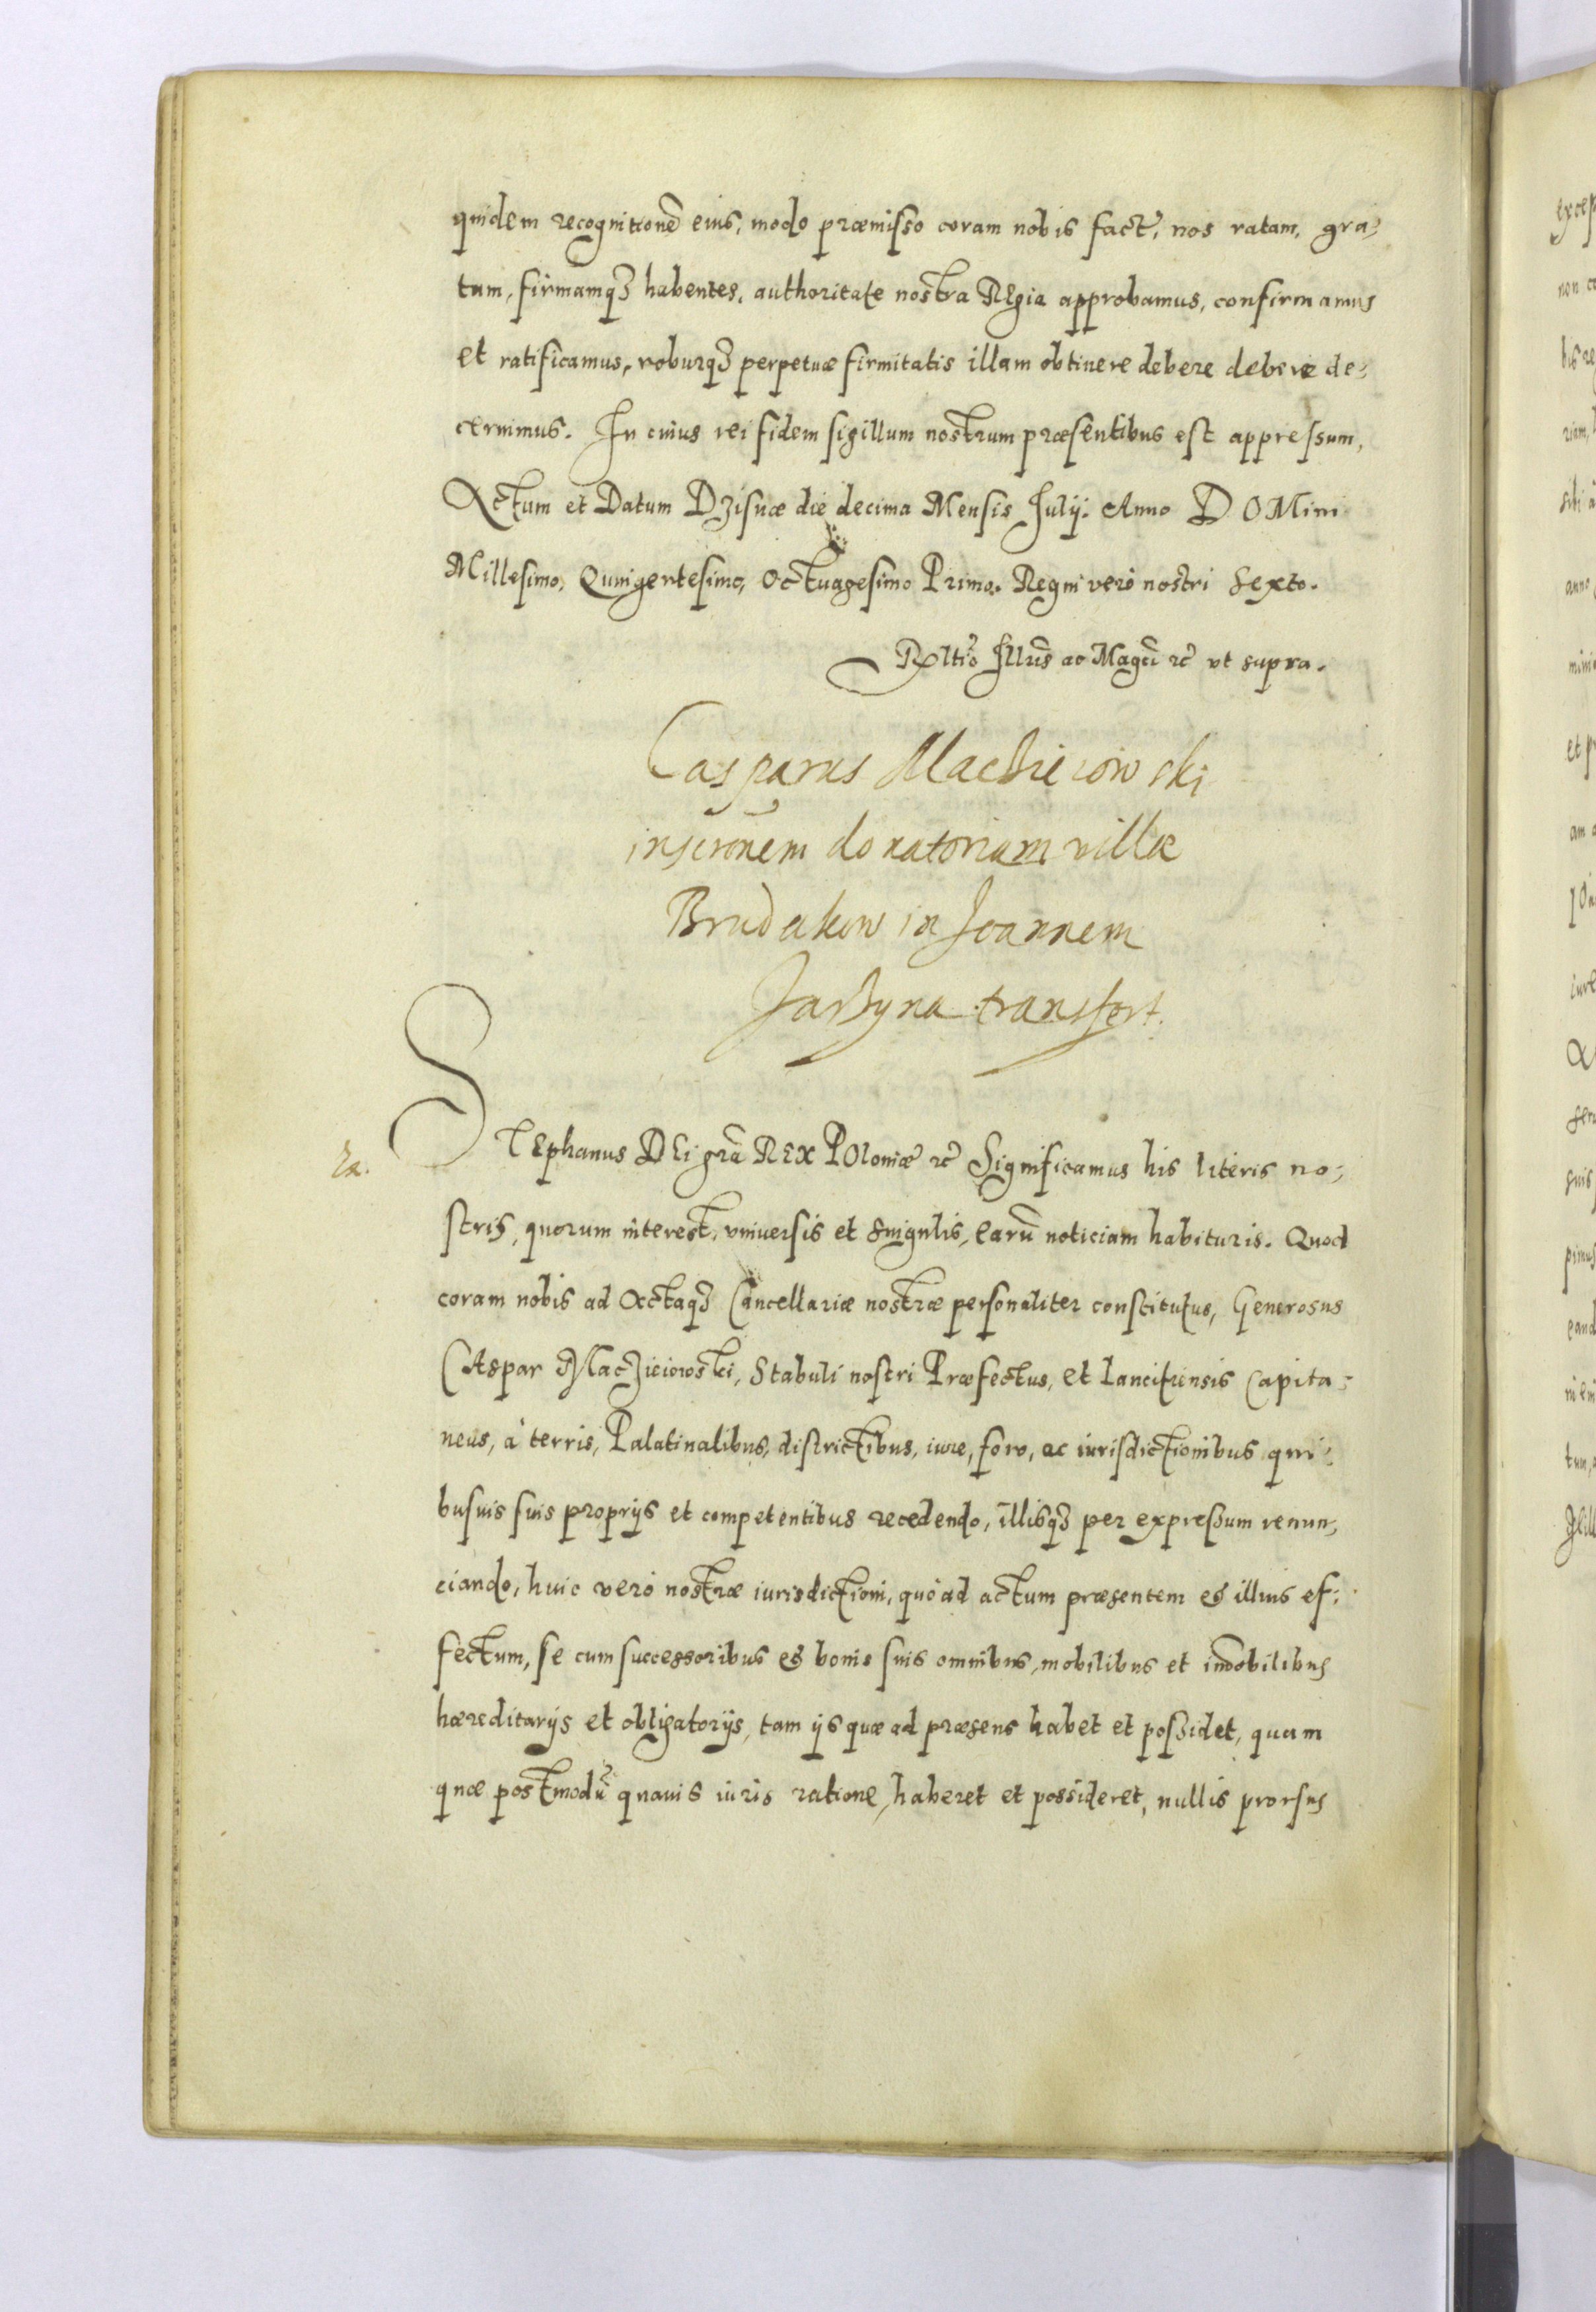 quidem recognitionẽ eius, modo præmisso coram nobis fact̃, nos ratam, gra-
tam, firmamqꝫ habentes, authoritate nostra Regia approbamus, confirmamus
et ratificamus, roburqꝫ perpetuæ firmitatis illam obtinere debere debere de-
cernimus. In cuius rei fidem sigillum nostrum præsentibus est appressum,
Actum et Datum Dzisnæ die decima Mensis Julij. Anno DOMini
Millesimo, Quingentesimo, Octuagesimo Primo. Regni verò nostri Sexto.
Rltio Illus ac Magci ꝛc̃ vt supra.
Casparus Maczieiowski
inscrönem donatoriam villæ
Brudakow in Joannem
Jarzyna transfert.
STEphanus DEi grã REX POloniæ ꝛc̃ Significamus his literis no-
stris, quorum interest, vniuersis et singulis, earũ noticiam habituris. Quod
coram nobis ad Actaqꝫ Cancellariæ nostræ personaliter constitutus, Generosus
CAspar Maczieiowski, Stabuli nostri Præfectus, et Lanciciensis Capita-
neus, à terris, Palatinalibus, districtibus, iure, foro, ac iurisdictionibus qui-
busuis suis proprijs et competentibus recedendo, illisqꝫ per expressum renun-
ciando, huic verò nostræ iurisdictioni, quò ad actum præsentem & illius ef-
fectum, se cum successoribus & bonis suis omnibus, mobilibus et im̃obilibus
hæreditarijs et obligatorijs, tam ijs quæ ad præsens habet et possidet, quam
quæ postmodũ quauis iuris ratione, haberet et possideret, nullis prorsus